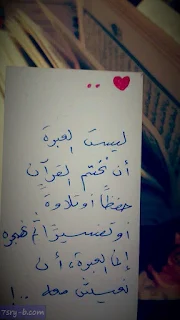 ليست العبرة
أن نختم القرآن
حفظاً أو تلاوة
أو تفسيراً ثم نهجره
إنما العبرة، أن
نعيش معه ..!
7sry-b.com